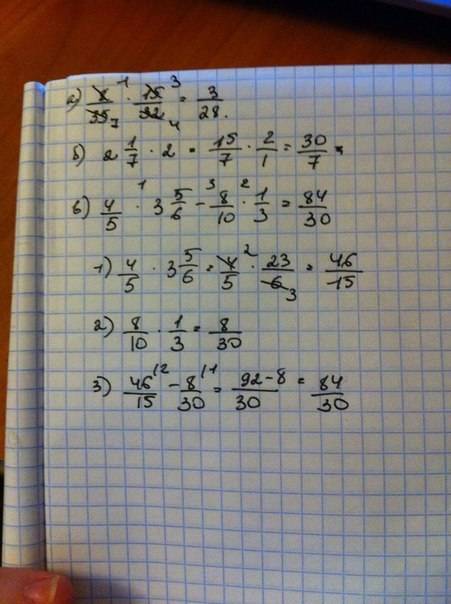 а) 8/35 · 15/32 = 3/28.
б) 2 1/7 · 2 = 15/7 · 2/1 = 30/7.
в) 4/5 · 3 5/6 - 8/10 · 1/3 = 84/30
1) 4/5 · 3 5/6 = 4/5 · 23/6 = 46/15
2) 8/10 · 1/3 = 8/30
3) 46/15 - 8/30 = 92-8/30 = 84/30